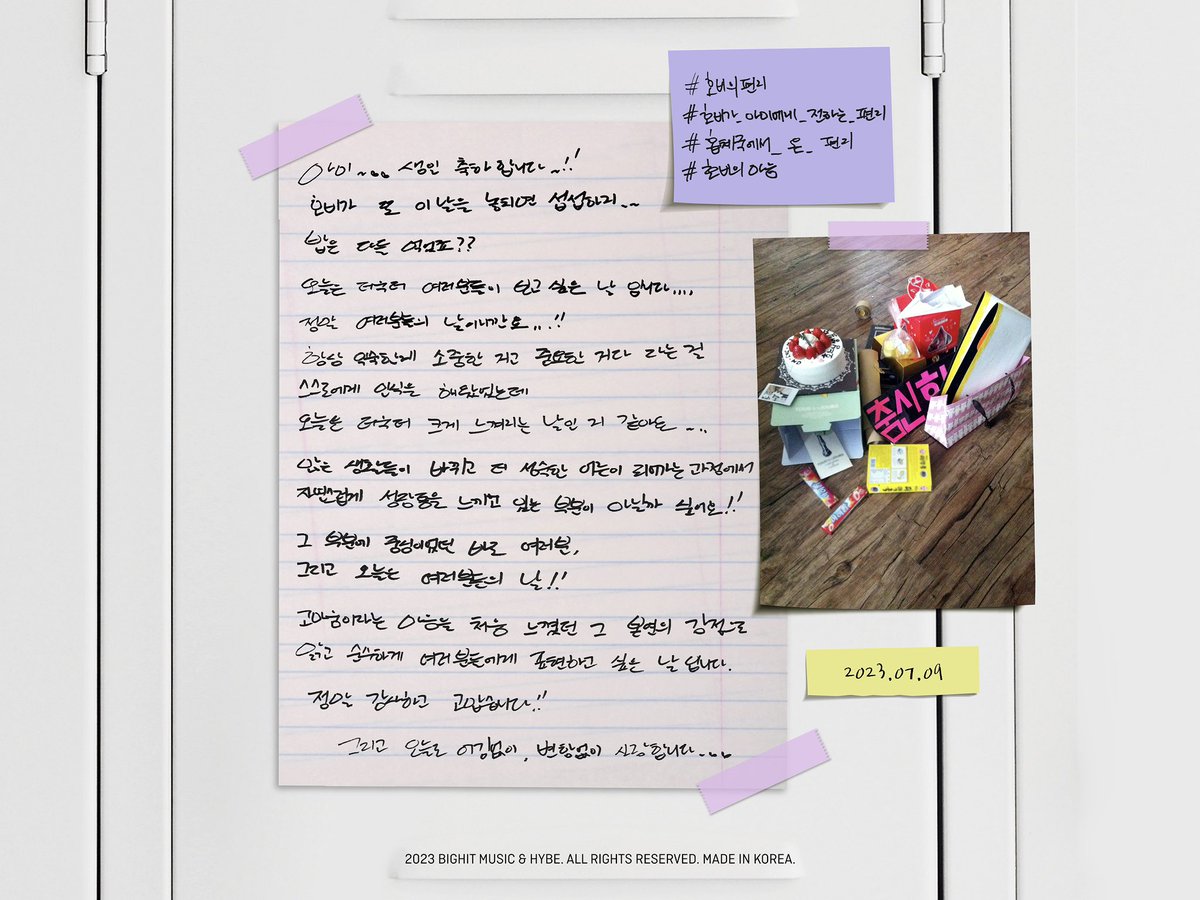 아미~~~ 생일 축하합니다~!!
호비가 또 이 날을 놓치면 섭섭하지~~
밥은 다들 먹었죠??
오늘은 더욱더 여러분들이 보고 싶은 날 입니다....
정말 여러분들의 날이니깐요...!!
항상 익숙한게 소중한 거고 중요한 거다 라는 걸
스스로에게 인식을 해왔었는데
오늘은 더욱더 크게 느껴지는 날인 거 같아요~..
많은 생각들이 바뀌고 더 성숙한 어른이 되어가는 과정에서
자연스럽게 성장통을 느끼고 있는 부분이 아닐까 싶어요!!
그 부분에 중심이었던 바로 여러분,
그리고 오늘은 여러분들의 날!!
고마움이라는 마음을 처음 느꼈던 그 본연의 감정으로
맑고 순수하게 여러분들에게 표현하고 싶은 날 입니다.
정말 감사하고 고맙습니다!!
그리고 오늘도 어김없이, 변함없이 사랑합니다~~~
#호비의편지
#호비가_아미에게_전하는_편지
#홉체국에서_온_편지
#호비의마음
춤신
2023.07.09
2023 BIGHIT MUSIC & HYBE. ALL RIGHTS RESERVED. MADE IN KOREA.